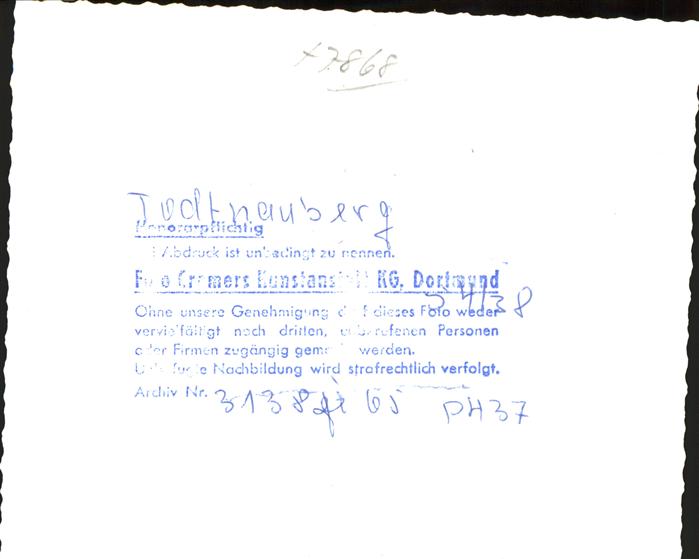 +7868
Todtnauberg
Honorarpflichtig
Abdruck ist unbedingt zu nennen.
Foto Cramers Kunstanstalt KG, Dortmund
Ohne unsere Genehmigung darf dieses Foto weder
vervielfältigt noch dritten, unberufenen Personen
oder Firmen zugängig gemacht werden.
Unbefugte Nachbildung wird strafrechtlich verfolgt.
Archiv Nr. 3138 65 PH37